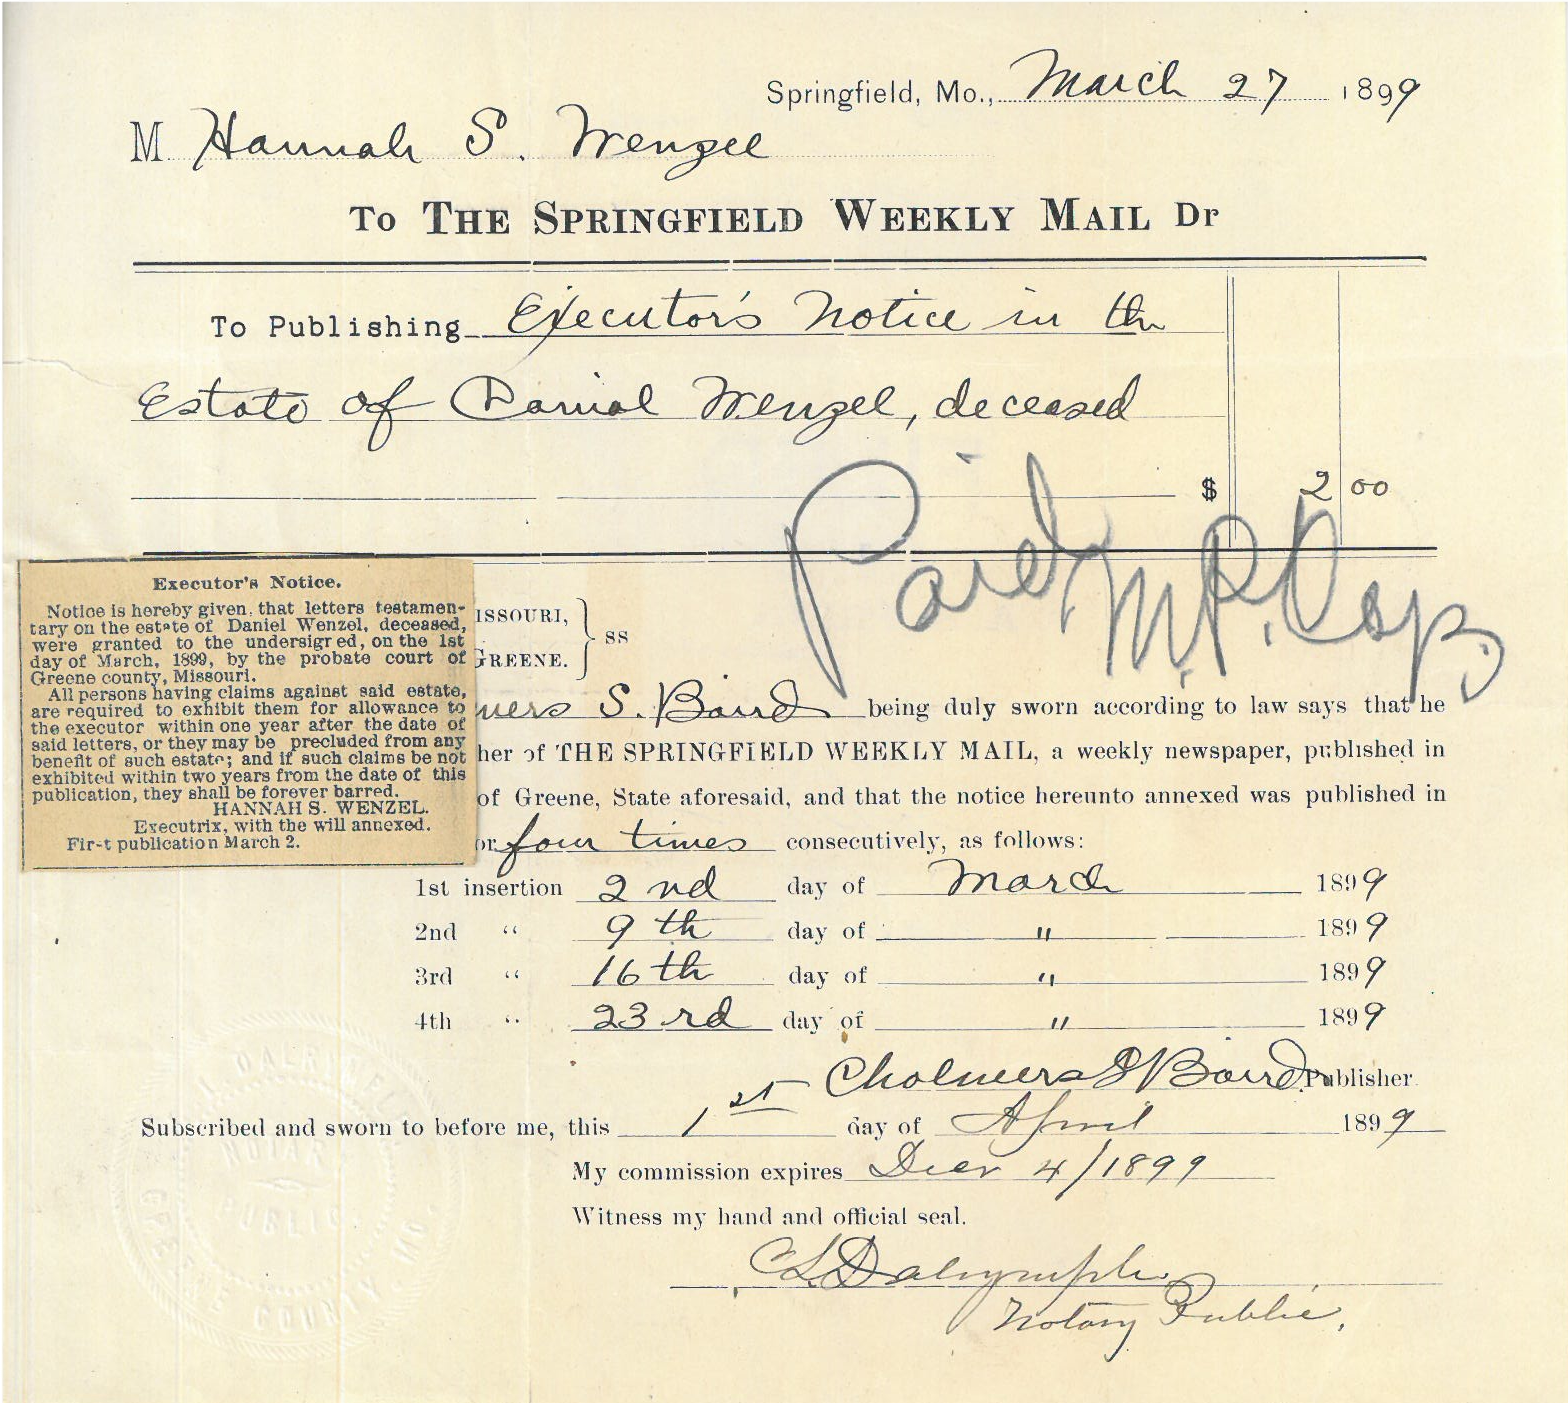 Springfield, Mo., March 27 1899
M Hannah S. Wenzel
To The Springfield Weekly Mail Dr
To Publishing Executor's Notice in the
Estate of Danial Wenzel, deceased
$ 2 00
Paid
Executor's Notice.
Notice is hereby given, that letters testamen-
tary on the estate of Daniel Wenzel, deceased,
were granted to the undersigred, on the 1st
day of March, 1899, by the probate court of
Greene county, Missouri.
All persons having claims against said estate,
are required to exhibit them for allowance to
the executor within one year after the date of
said letters, or they may be precluded from any
benefit of such estate; and if such claims be not
exhibited within two years from the date of this
publication, they shall be forever barred.
HANNAH S. WENZEL.
Executrix, with the will annexed.
Fir-t publication March 2.
ISSOURI,
GREENE. } ss
mers S. Baird being duly sworn according to law says that he
her of THE SPRINGFIELD WEEKLY MAIL, a weekly newspaper, published in
of Greene, State aforesaid, and that the notice hereunto annexed was published in
or four times consecutively, as follows:
1st insertion 2nd day of March 1899
2nd " 9th day of " 1899
3rd " 16th day of " 1899
4th " 23rd day of " 1899
Chalmers S Baird Publisher
Subscribed and sworn to before me, this 1st day of April 1899
My commission expires Decr 4/1899
Witness my hand and official seal.
C L Dalrymple
Notary Public.
DALRYMPLE
NOTARY
PUBLIC
GREENE COUNTY MO.